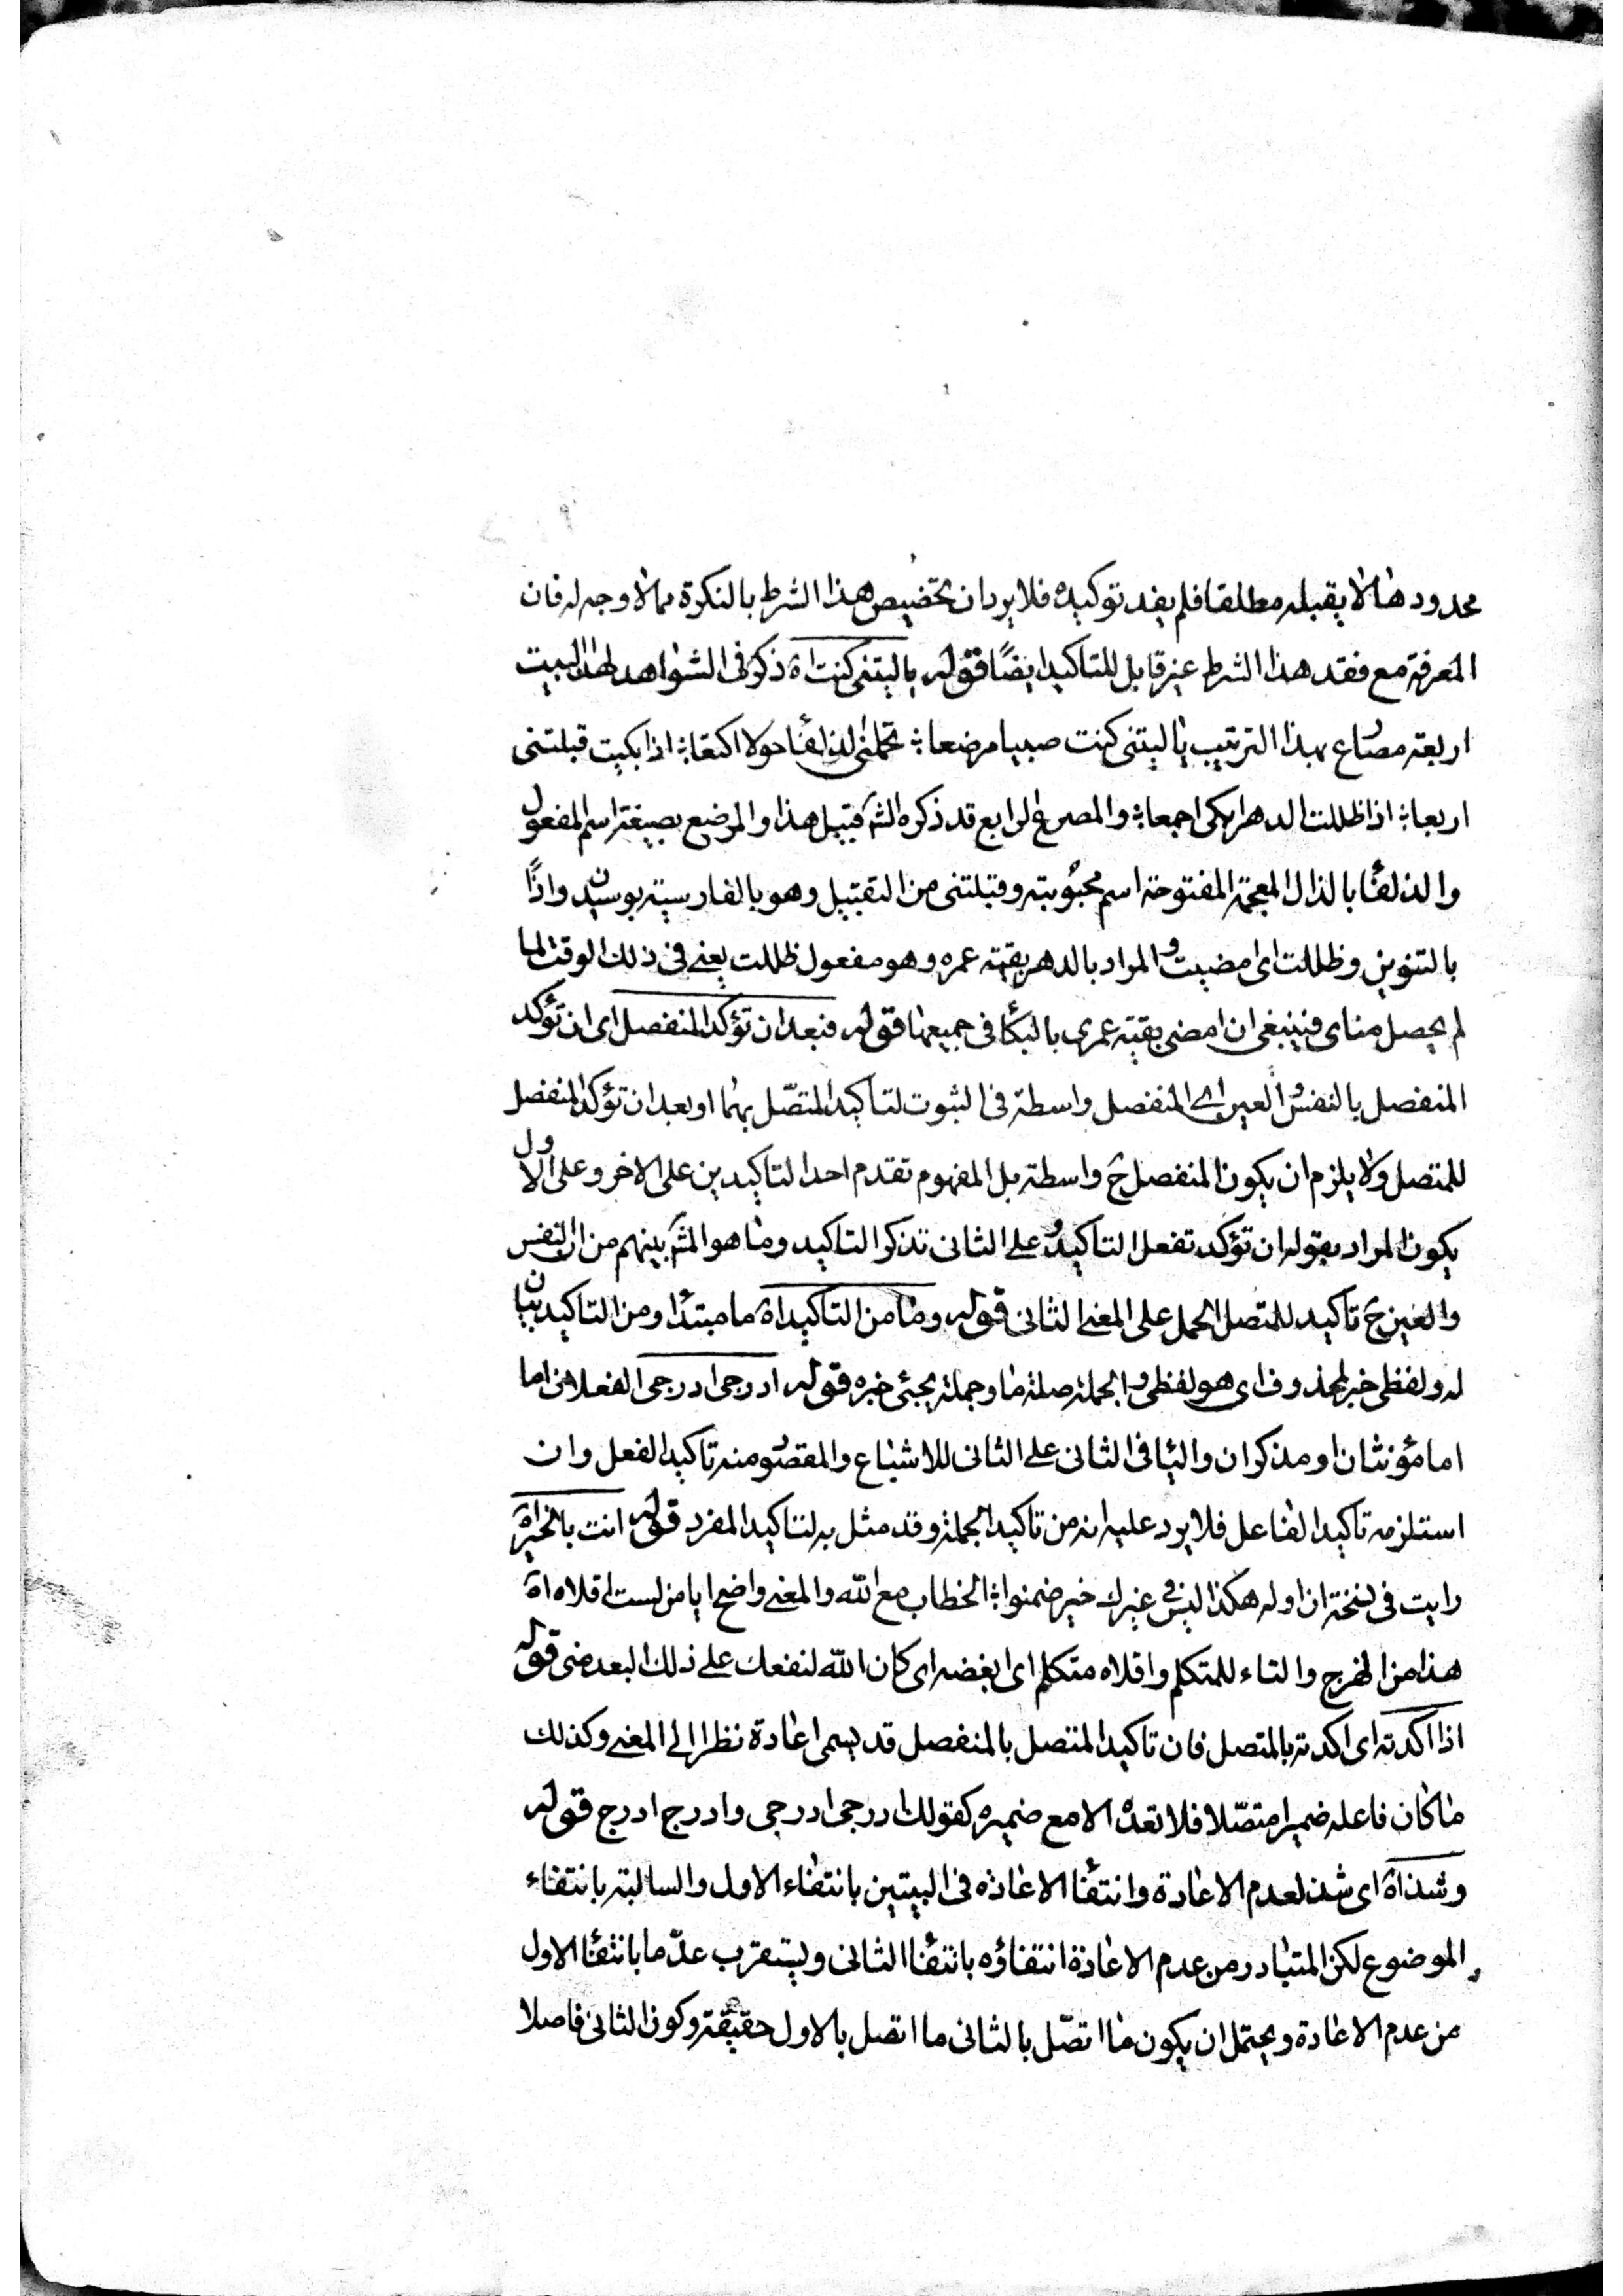 محدودها لا يقبله مطلقا فلم يفد توكيده فلا يرد ان تخصيص هذا الشرط بالنكرة مما لا وجه له فان
المعرفة مع فقد هذا الشرط غير قابل للتاكيد ايضًا قوله ياليتني كنت اه ذكر في الشواهد لهذا البيت
اربعة مصراع بهذا الترتيب ياليتني كنت صبيا مرضعا تحملني الذلفاء حولا اكتعا اذا بكيت قبلتني
اربعا اذا ظللت الدهر ابكي اجمعا والمصرع الرابع قد ذكره الش قبيل هذا والمرضع بصيغة اسم المفعول
والذلفاء بالذال المعجمة المفتوحة اسم محبوبته وقبلتني من التقبيل وهو بالفارسية بوسيدن واذًا
بالتنوين وظللت اى مضيت والمراد بالدهر بقية عمره وهو مفعول ظللت يعني في ذلك الوقت لما
لم يحصل مناى فينبغي ان امضى بقية عمرى بالبكاء في جميعها قوله فبعد ان تؤكد المنفصل اى ان تؤكد
المنفصل بالنفس والعين اى المنفصل واسطة في الثبوت لتاكيد المتصّل بهما او بعد ان تؤكد المنفصل
للمتصل ولا يلزم ان يكون المنفصل ح واسطة بل المفهوم تقدم احد التاكيدين على الاخر وعلى الاول
يكون المراد بقوله ان تؤكد تفعل التاكيد وعلى الثاني تذكر التاكيد وما هو المش بينهم من ان النفس
والعين ح تاكيد للمتصل الحمل على المعنى الثاني قوله وما من التاكيد اه ما مبتدا ومن التاكيد بيان
له ولفظي خبر لمحذوف اى هو لفظي والجملة صلة ما وجملة يجئ خبره قوله ادرجي ادرجي الفعلان اما
اما مؤنثان او مذكران والياء في الثاني على الثاني للاشباع والمقصود منه تاكيد الفعل وان
استلزمه تاكيد الفاعل فلا يرد عليه انه من تاكيد الجملة وقد مثل به لتاكيد المفرد قوله انت بالخير اه
رايت في نسخة ان اوله هكذا ليس في غيرك خير ضمنوا الخطاب مع الله والمعنى واضح ايا من لست اقلاه اه
هذا من الهزج والتاء للمتكلم واقلاه متكلم اى ابغضه اى كان الله لنفعك على ذلك البعد مني قوله
اذا اكدته اى اكدته بالمتصل فان تاكيد المتصل بالمنفصل قد يسمى اعادة نظرا الى المعنى وكذلك
ما كان فاعله ضميرا متصّلا فلا تعده الا مع ضميره كقولك ادرجي ادرجي وادرج ادرج قوله
وشذ اه اى شذ لعدم الاعادة وانتفاء الاعاده في البيتين بانتفاء الاول والسالبة بانتفاء
الموضوع لكن المتبادر من عدم الاعادة انتفاؤه بانتفاء الثاني ويستقرب عدّ ما بانتفاء الاول
من عدم الاعادة ويحتمل ان يكون ما اتصّل بالثاني ما اتصل بالاول حقيقة وكون الثاني فاصلا